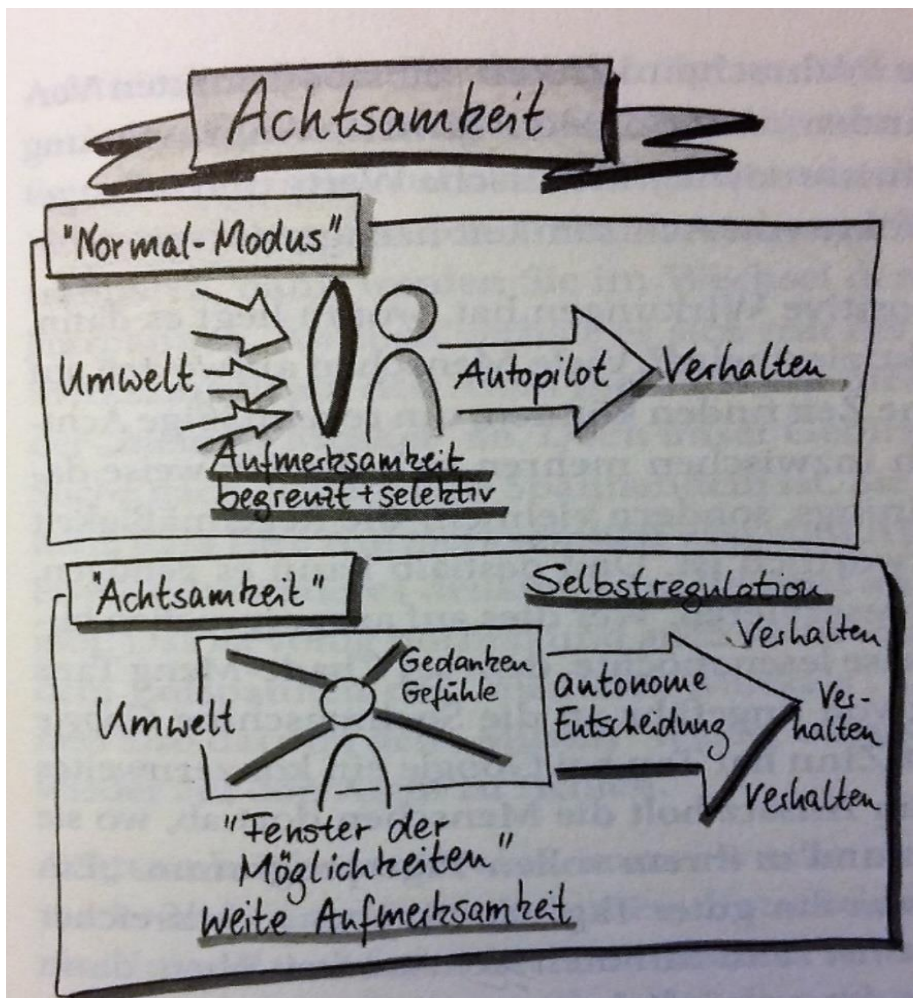 Achtsamkeit
"Normal-Modus"
Umwelt
Autopilot
Verhalten
Aufmerksamkeit
begrenzt + selektiv
"Achtsamkeit"
Selbstregulation
Umwelt
Gedanken
Gefühle
autonome
Entscheidung
Verhalten
Ver-
halten
Verhalten
"Fenster der
Möglichkeiten"
weite Aufmerksamkeit